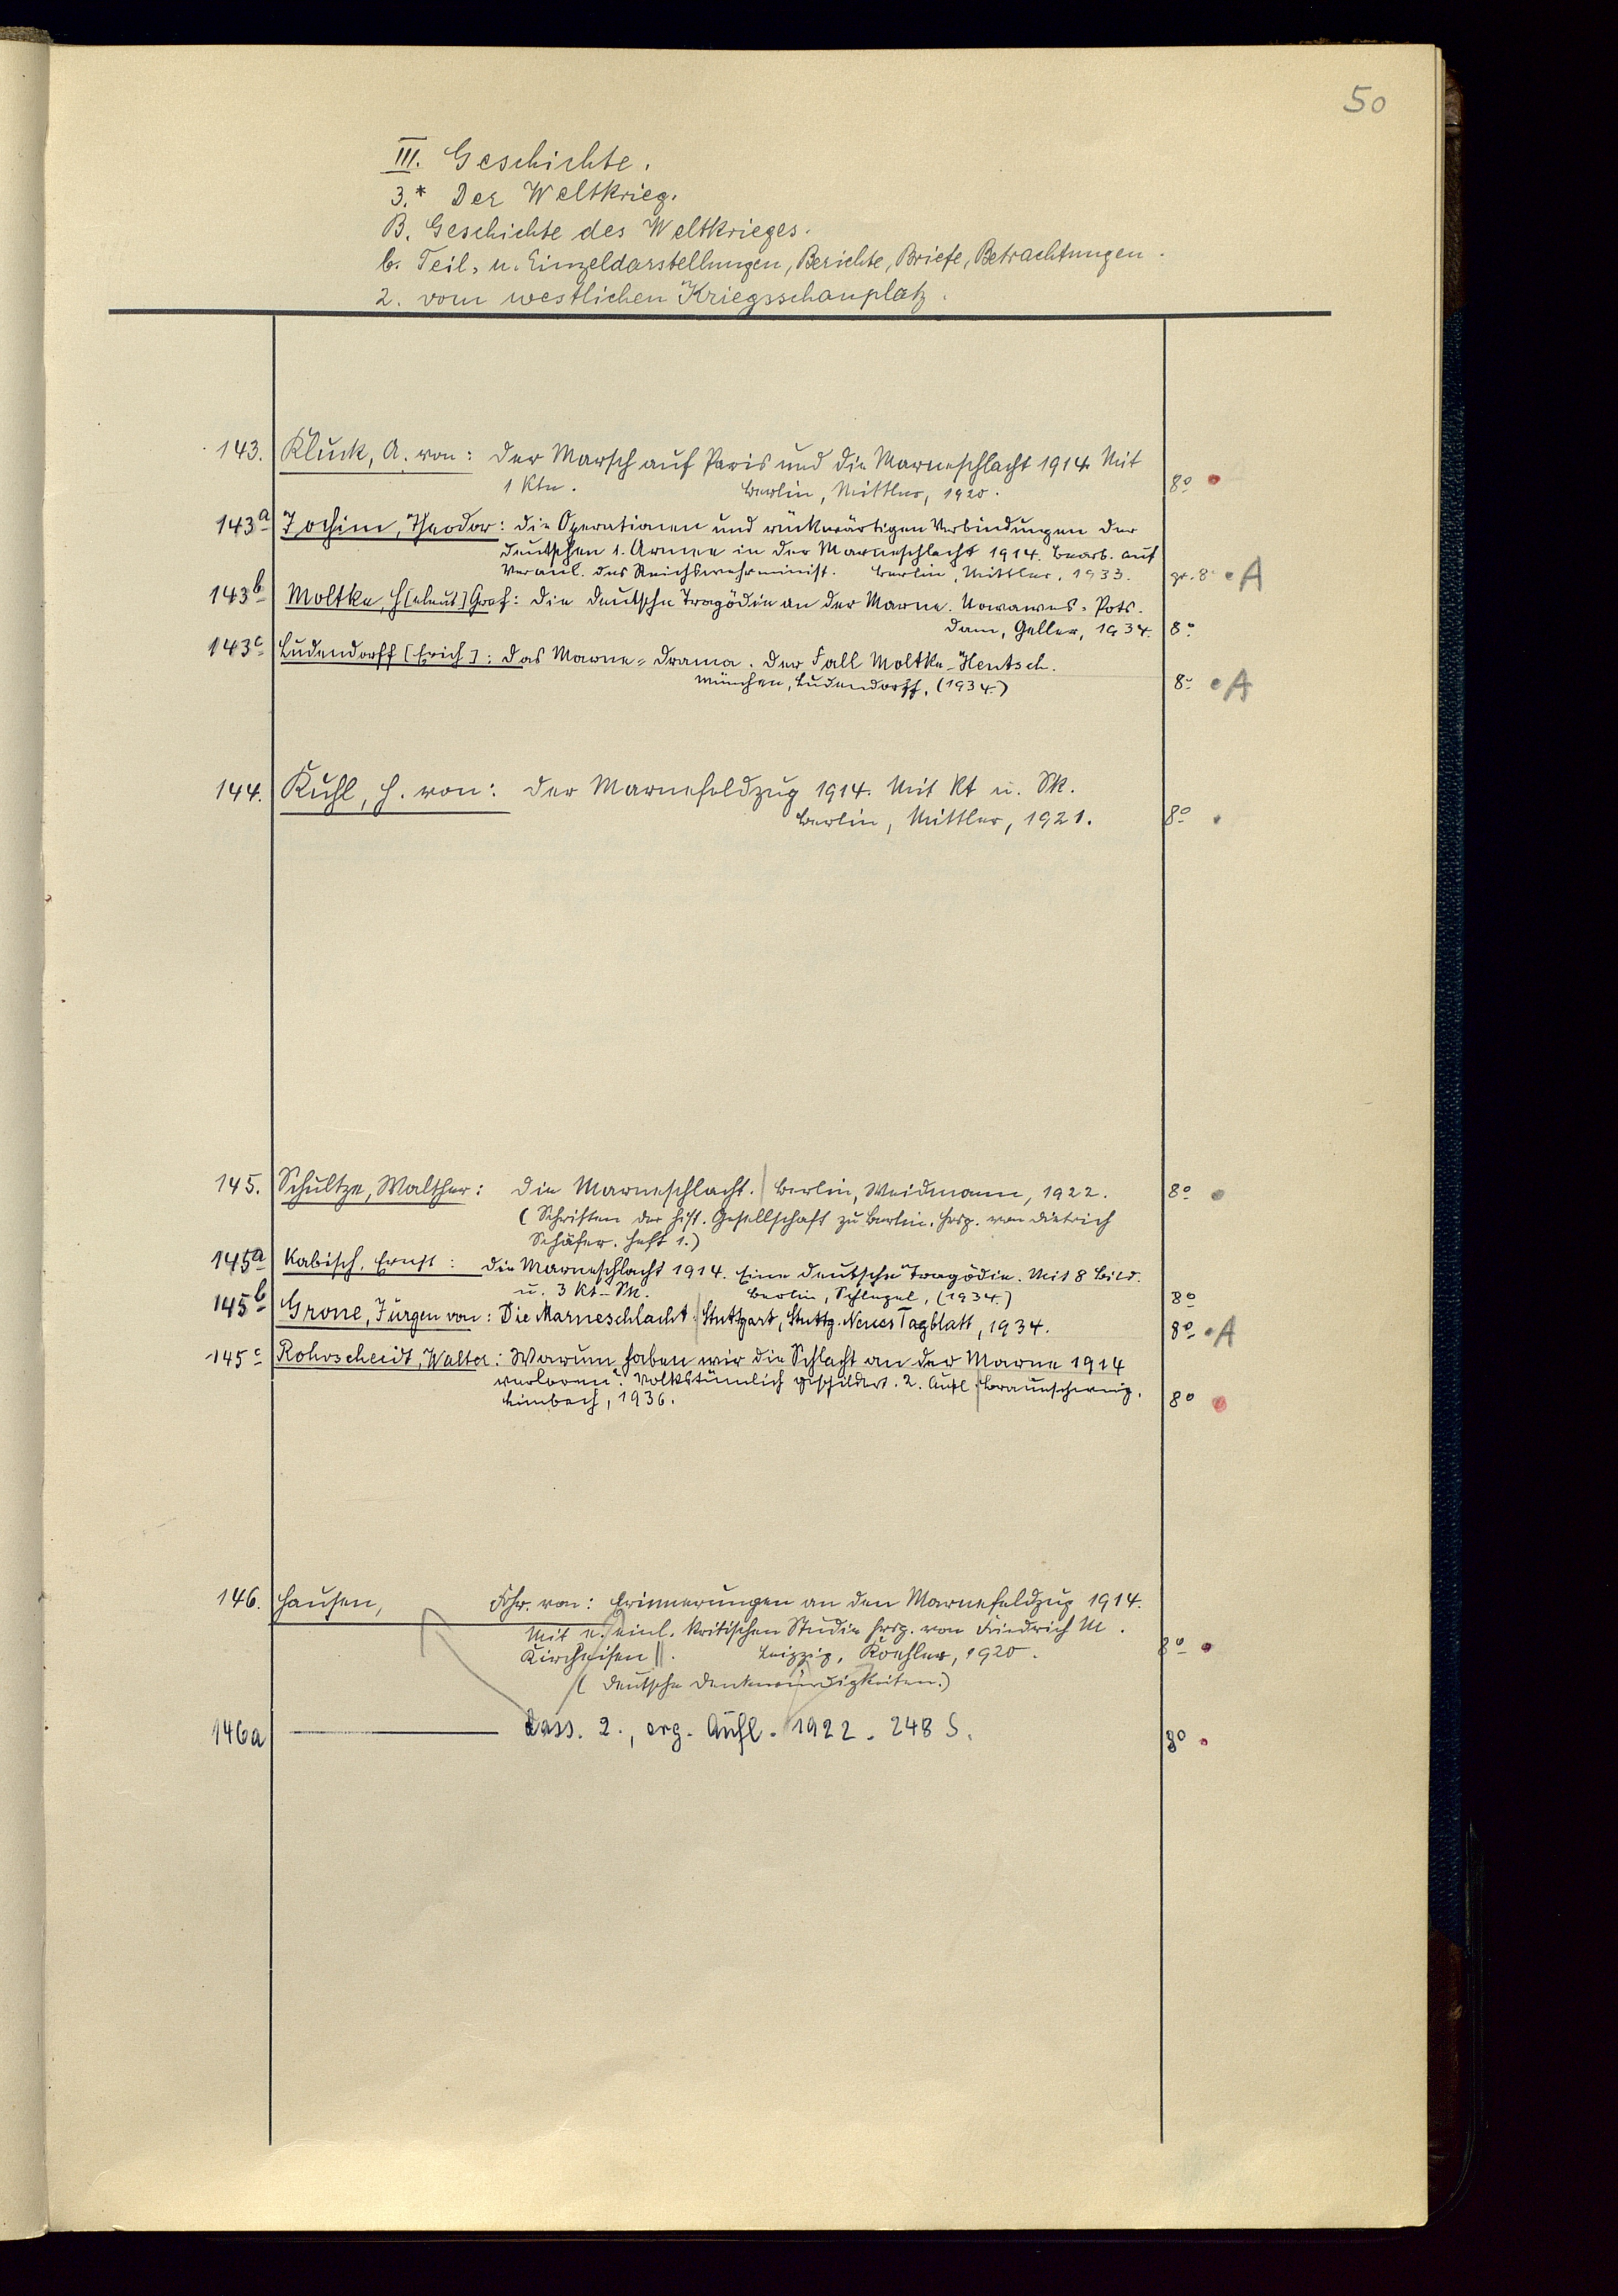 50
III. Geschichte.
3.* Der Weltkrieg.
B. Geschichte des Weltkrieges.
b. Teil- u. Einzeldarstellungen, Berichte, Briefe, Betrachtungen.
2. vom westlichen Kriegsschauplatz.
143. Kluck, A. von: Der Marsch auf Paris und die Marneschlacht 1914. Mit
1 Kte. Berlin, Mittler, 1920. 8°
143a Jochim, Theodor: Die Operationen und rückwärtigen Verbindungen der
deutschen 1. Armee in der Marneschlacht 1914. Bearb. auf
Veranl. des Reichswehrminist. Berlin, Mittler, 1933. gr. 8° A
143b Moltke, H[elmut] Graf: Die deutsche Tragödie an der Marne. Nowawes-Pots-
dam, Geller, 1934. 8°
143c Ludendorff [Erich]: Das Marne-Drama. Der Fall Moltke-Hentsch.
München, Ludendorff, (1934.) 8° A
144. Kuhl, H. von: Der Marnefeldzug 1914. Mit Kt u. Sk.
Berlin, Mittler, 1921. 8°
145. Schultze, Walther: Die Marneschlacht. Berlin, Weidmann, 1922. 8°
(Schriften der hist. Gesellschaft zu Berlin. Hrsg. von Dietrich
Schäfer. Heft 1.)
145a Kabisch, Ernst: Die Marneschlacht 1914. Eine deutsche Tragödie. Mit 8 Bild.
u. 3 Kt-Sk. Berlin, Schlegel, (1934.) 8°
145b Grone, Jürgen von: Die Marneschlacht. Stuttgart, Stuttg. Neues Tagblatt, 1934. 8° A
145c Rohrscheidt, Walter: Warum haben wir die Schlacht an der Marne 1914
verloren? Volkstümlich geschildert. 2. Aufl. Braunschweig,
Limbach, 1936. 8°
146. Hausen, Frhr. von: Erinnerungen an den Marnefeldzug 1914.
Mit e. einl. kritischen Studie hrsg. von Friedrich M.
Kircheisen. Leipzig, Koehler, 1920. 8°
(Deutsche Denkwürdigkeiten.)
146a Dass. 2., erg. Aufl. 1922. 248 S. 8°